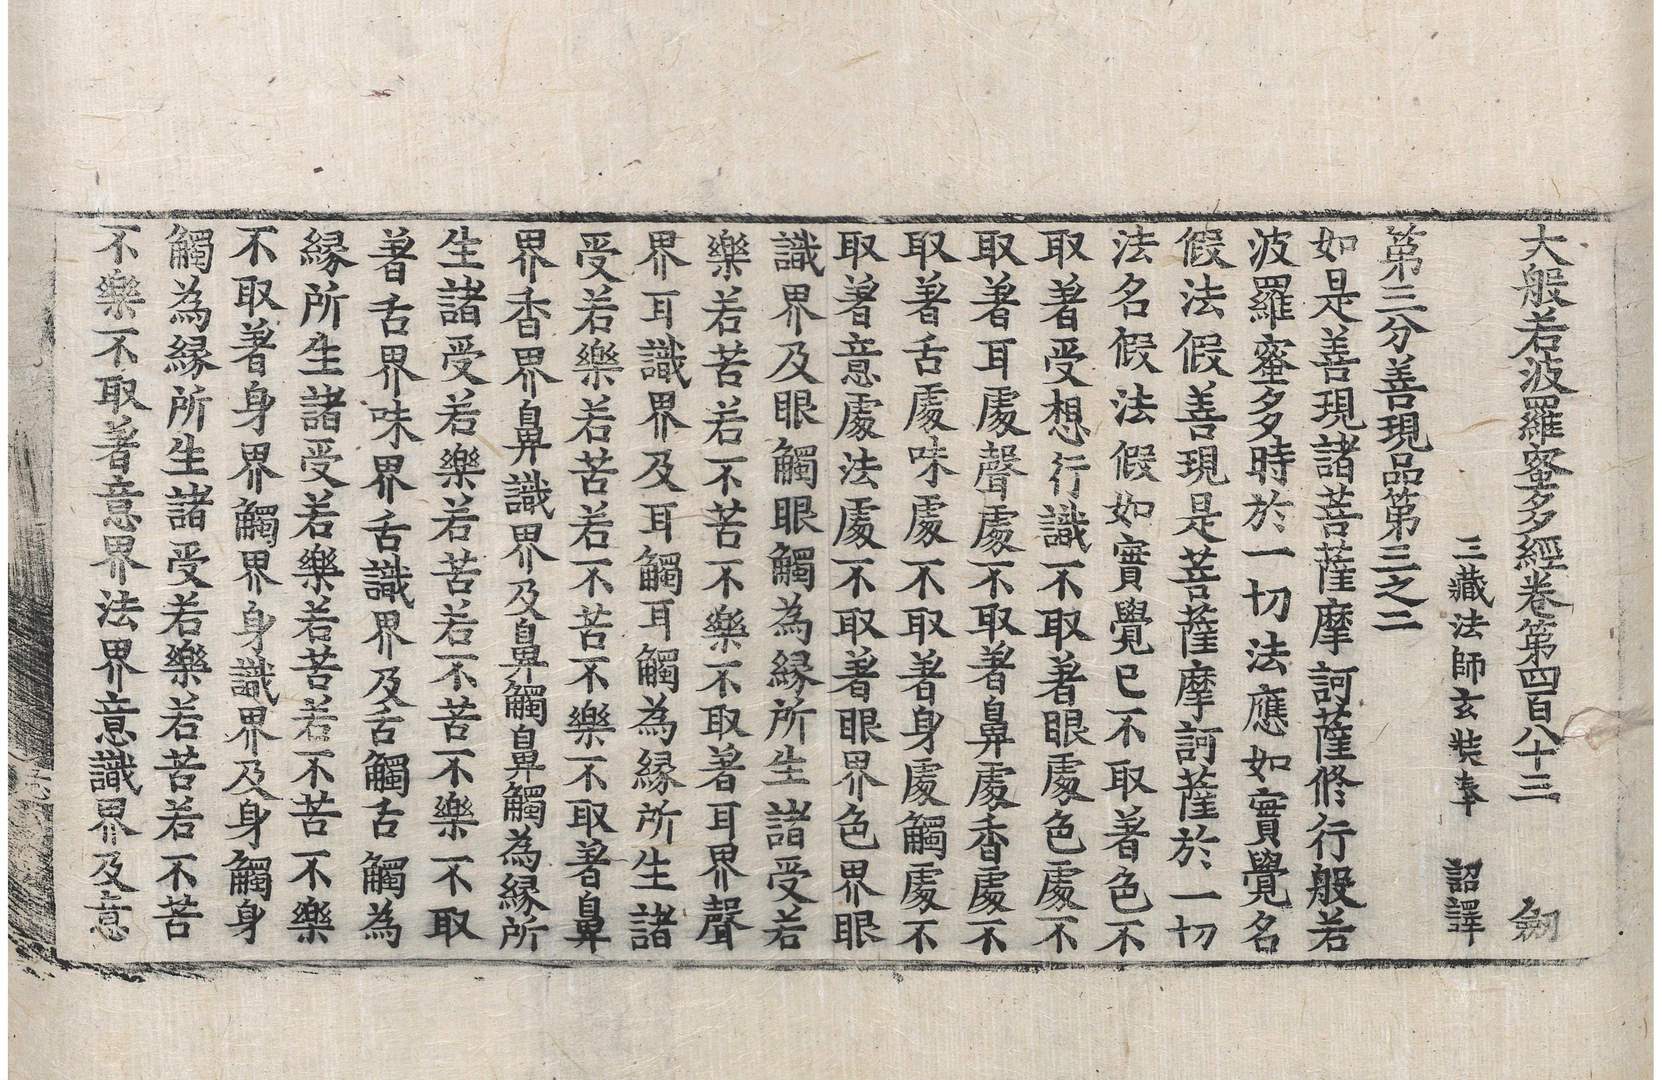 大般若波羅蜜多經卷第四百八十三　劒
三藏法師玄奘奉　詔譯
第三分善現品第三之二
如是善現諸菩薩摩訶薩修行般若
波羅蜜多時於一切法應如實覺名
假法假善現是菩薩摩訶薩於一切
法名假法假如實覺已不取著色不
取著受想行識不取著眼處色處不
取著耳處聲處不取著鼻處香處不
取著舌處味處不取著身處觸處不
取著意處法處不取著眼界色界眼
識界及眼觸眼觸為緣所生諸受若
樂若苦若不苦不樂不取著耳界聲
界耳識界及耳觸耳觸為緣所生諸
受若樂若苦若不苦不樂不取著鼻
界香界鼻識界及鼻觸鼻觸為緣所
生諸受若樂若苦若不苦不樂不取
著舌界味界舌識界及舌觸舌觸為
緣所生諸受若樂若苦若不苦不樂
不取著身界觸界身識界及身觸身
觸為緣所生諸受若樂若苦若不苦
不樂不取著意界法界意識界及意